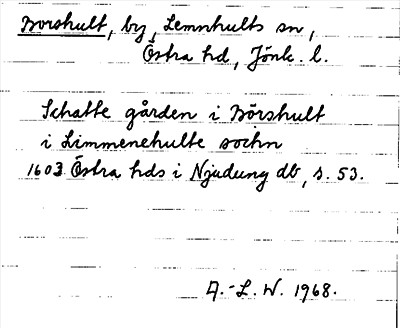 Borshult, by, Lemnhults sn,
Östra hd, Jönk. l.
Schatte gården i Börshult
i Limmenehulte sochn
1603 Östra hds i Njudung db, s. 53.
A.-L. W. 1968.